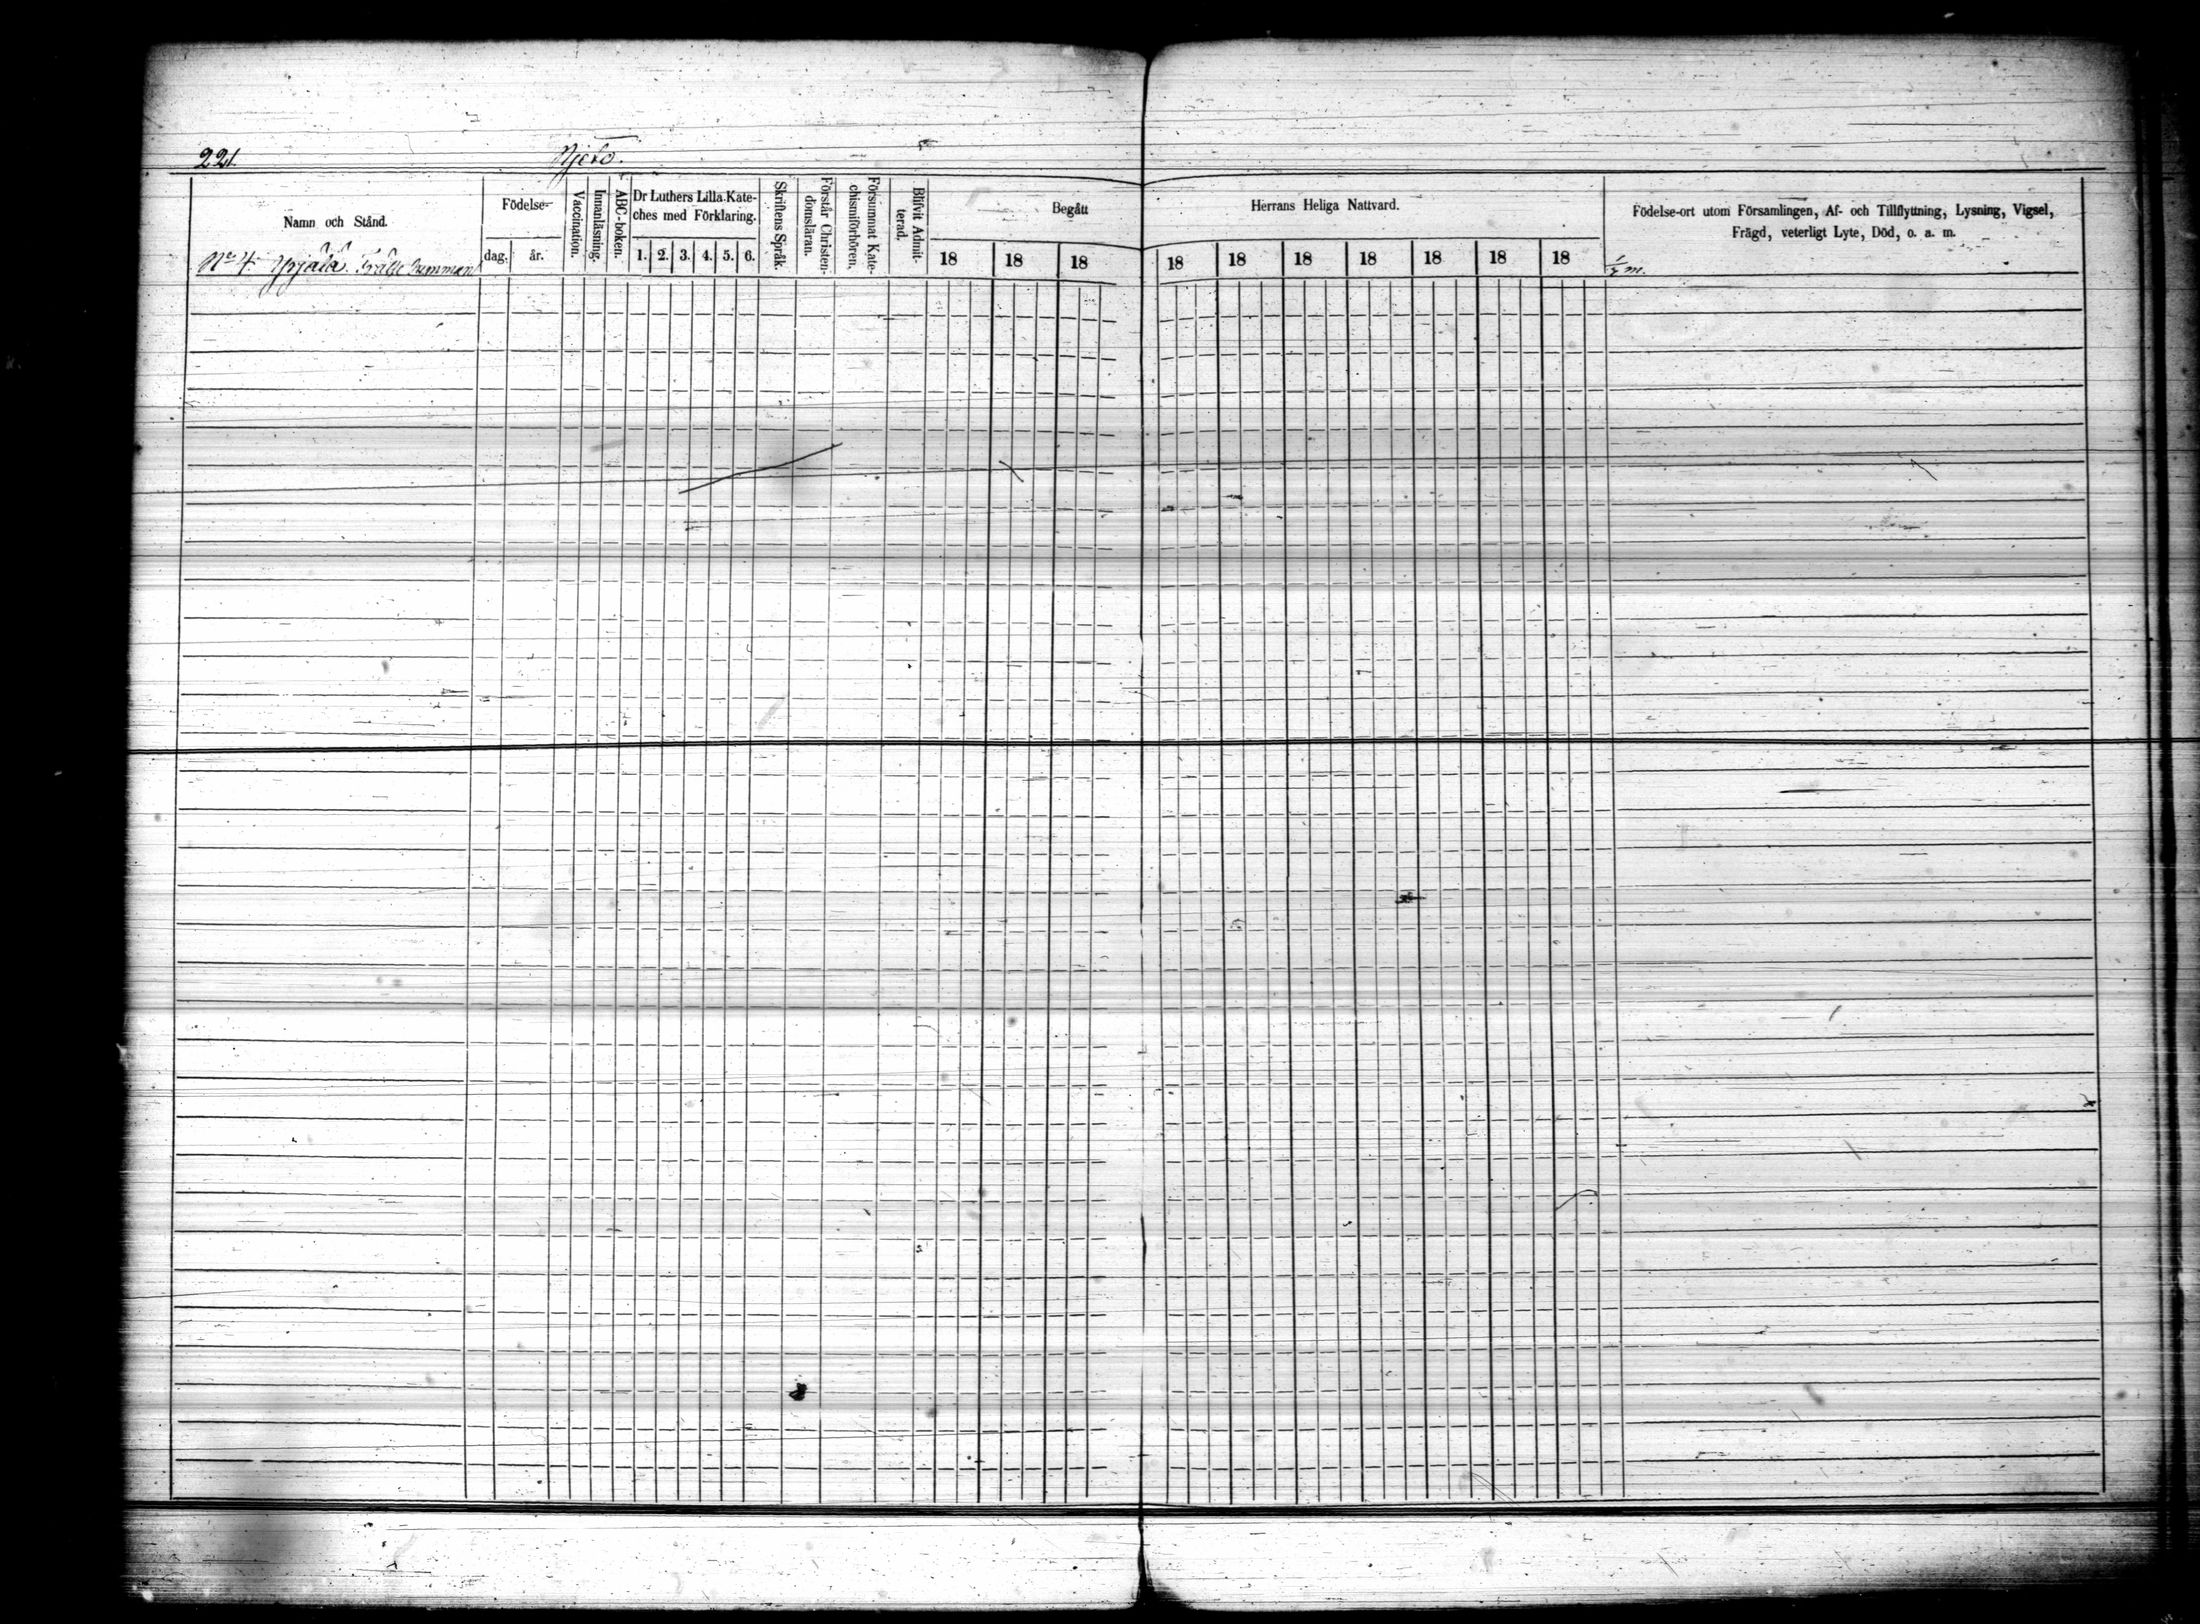 221.
Namn och Stånd.
No 4
Födelse-
dag.
år.
Vaccination.
Innanläsning.
ABC-boken.
Dr Luthers Lilla Kate-
ches med Förklaring.
1. 2. 3. 4. 5. 6.
Skriftens Språk.
Förstår Christen-
domsläran.
Försummat Kate-
chismiförhören.
Blifvit Admit-
terad.
Begått Herrans Heliga Nattvard.
18 18 18 18 18 18 18 18 18 18
Födelse-ort utom Församlingen, Af- och Tillflyttning, Lysning, Vigsel,
Frägd, veterligt Lyte, Död, o. a. m.